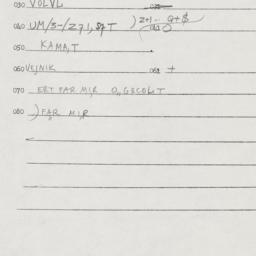 030 VOLVL
040 UM/3-/Z71,$7T )Z+1- Q+$
050 KAMA,T
060 VEJNIK 061 +
070 ERT FAR MIR
080 )FAR MIR